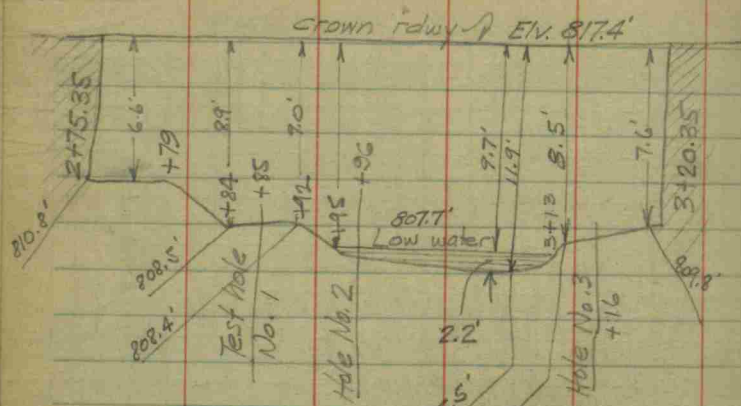 Crown rdwy Elv. 817.4'
2+75.35
6.6'
+79
8.9'
+84
+85
9.0'
+92
+95
+96
9.7'
11.9'
8.5'
3+13
7.6'
3+20.35
807.7'
Low water
810.8'
808.5'
808.4'
809.8'
Test Hole
No. 1
Hole No. 2
2.2'
Hole No. 3
+16
.5'